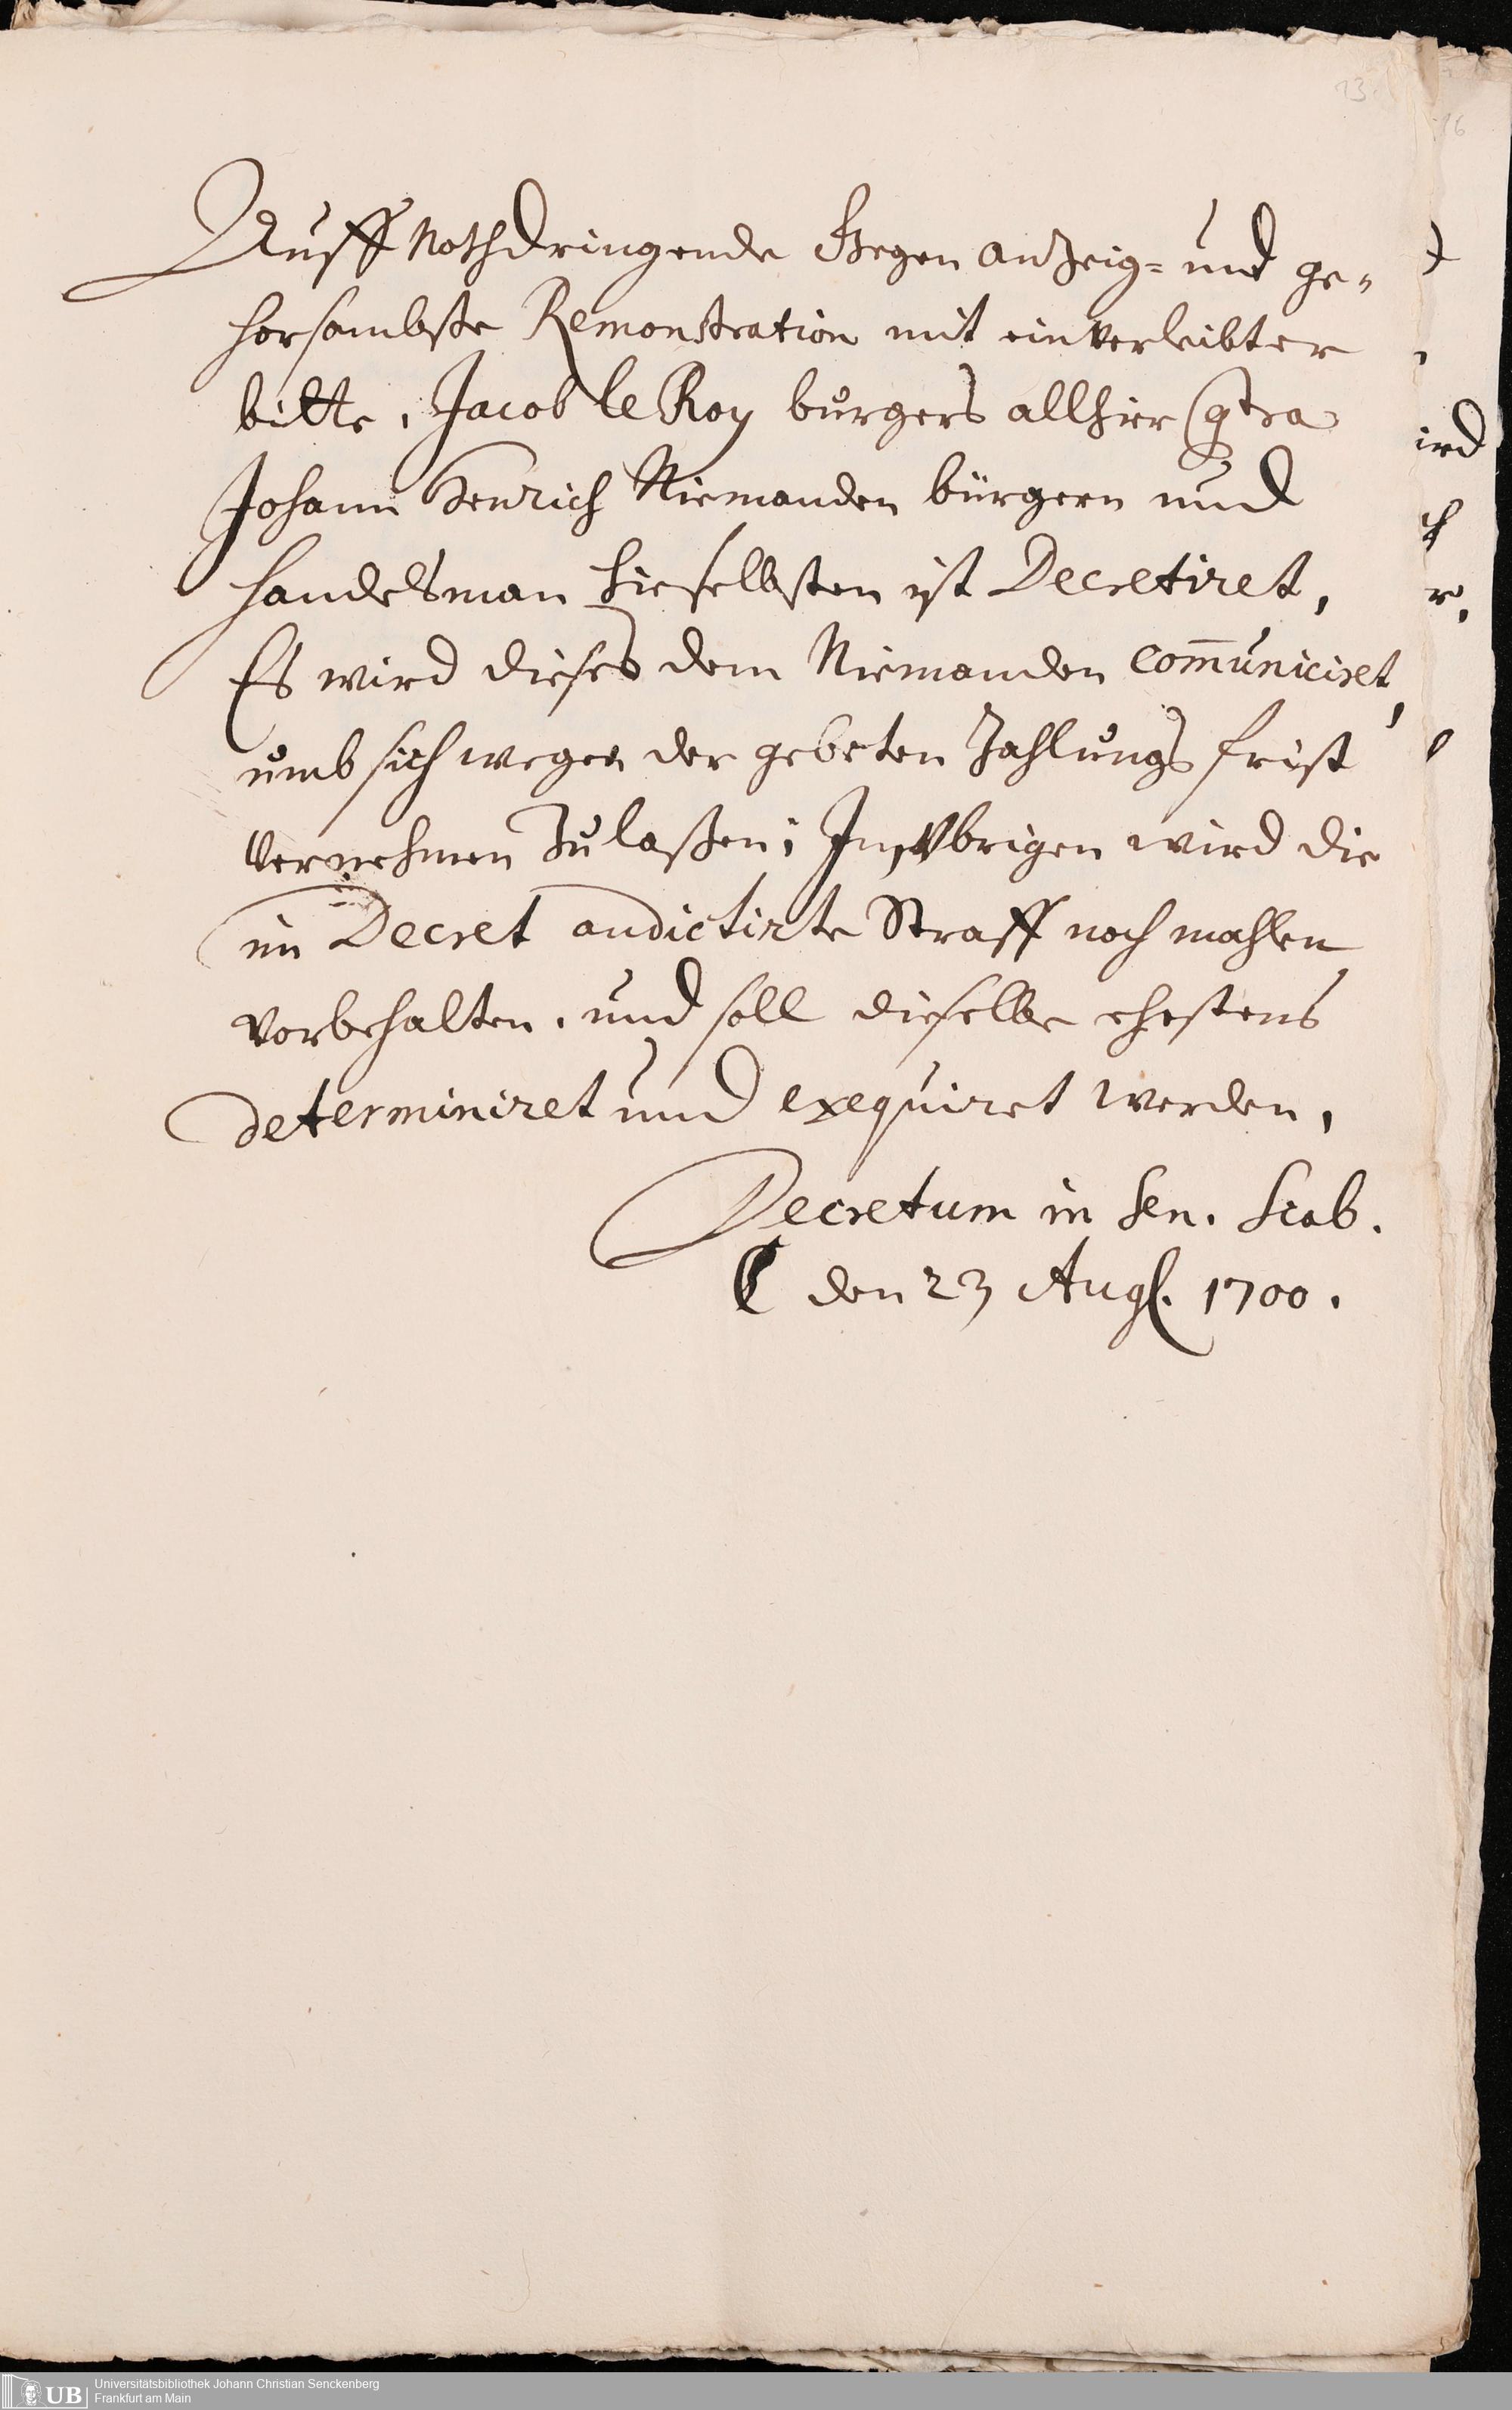 13.
16
Auff Nothdringende Gegen anzeig= und ge-
horsambste Remonstration mit einverleibter
bitte, Jacob le Roy burgers allhier Contra
Johann Henrich Niemanden bürgern und
handelsman hieselbsten ist Decretiret,
Es wird dieses dem Niemanden com̄uniciret,
umb sich wegen der gebeten Zahlungs frist
vernehmen Zu laßen; Im Vbrigen wird die
im Decret andictirte Straff noch mahlen
vorbehalten, und soll dieselbe ehestens
determiniret und exequiret werden,
Decretum in Sen. Scab.
☾ den 23 Aug. 1700.
UB
Universitätsbibliothek Johann Christian Senckenberg
Frankfurt am Main